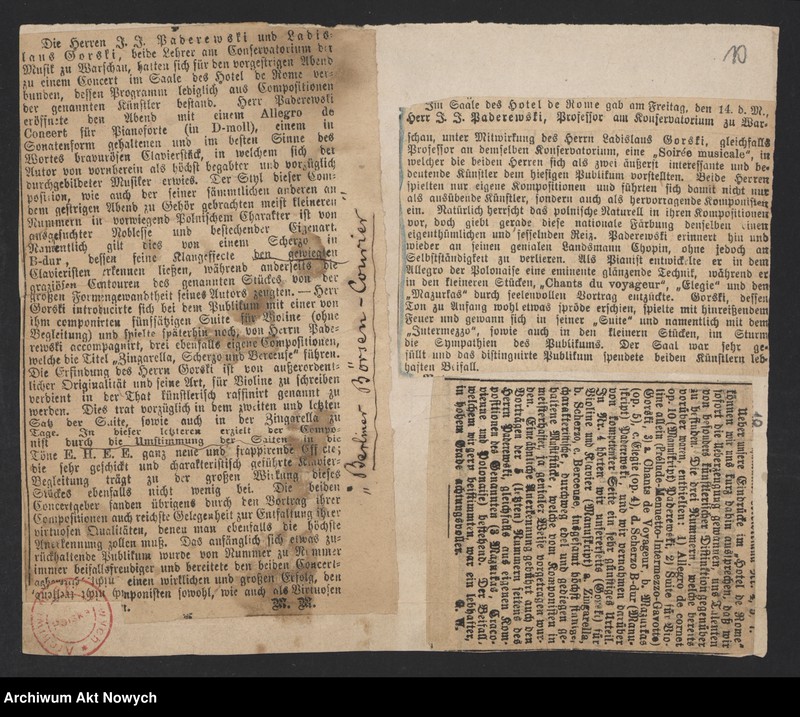 Die Herren J. J. Paderewski und Ladis-
laus Gorski, beide Lehrer am Conservatorium der
Musik zu Warschau, hatten sich für den vorgestrigen Abend
zu einem Concert im Saale des Hotel de Rome ver-
bunden, dessen Programm lediglich aus Compositionen
der genannten Künstler bestand. Herr Paderewski
eröffnete den Abend mit einem Allegro de
Concert für Pianoforte (in D-moll), einem in
Sonatenform gehaltenen und im besten Sinne des
Wortes bravurösen Clavierstück, in welchem sich der
Autor von vornherein als höchst begabter und vorzüglich
durchgebildeter Musiker erwies. Der Styl dieser Com-
position, wie auch der seiner sämmtlichen anderen an
dem gestrigen Abend zu Gehör gebrachten meist kleineren
Nummern in vorwiegend Polnischem Charakter ist von
ausgesuchter Noblesse und bestechender Eigenart.
Namentlich gilt dies von einem Scherzo in
B-dur, dessen feine Klangeffecte den gewiegten
Clavieristen erkennen ließen, während anderseits die
graziösen Contouren des genannten Stückes von der
großen Formengewandtheit seines Autors zeugten. — Herr
Gorski introducirte sich bei dem Publikum mit einer von
ihm componirten fünfsätzigen Suite für Violine (ohne
Begleitung) und spielte späterhin noch, von Herrn Pade-
rewski accompagnirt, drei ebenfalls eigene Compositionen,
welche die Titel „Zingarella, Scherzo und Berceuse" führen.
Die Erfindung des Herrn Gorski ist von außerordent-
licher Originalität und seine Art, für Violine zu schreiben
verdient in der That künstlerisch raffinirt genannt zu
werden. Dies trat vorzüglich in dem zweiten und letzten
Satz der Suite, sowie auch in der Zingarella zu
Tage. In dieser letzteren erzielt der Compo-
nist durch die Umstimmung der Saiten in die
Töne E. H. E. E. ganz neue und frappirende Effecte;
die sehr geschickt und charakteristisch geführte Clavier-
Begleitung trägt zu der großen Wirkung dieses
Stückes ebenfalls nicht wenig bei. Die beiden
Concertgeber fanden übrigens durch den Vortrag ihrer
Compositionen auch reichste Gelegenheit zur Entfaltung ihrer
virtuosen Qualitäten, denen man ebenfalls die höchste
Anerkennung zollen muß. Das anfänglich sich etwas zu-
rückhaltende Publikum wurde von Nummer zu Nummer
immer beifallsfreudiger und bereitete den beiden Concert-
einen wirklichen und großen Erfolg, den
Componisten sowohl, wie auch als Virtuosen
M. M.
„Berliner Börsen-Courier"
10
Im Saale des Hotel de Rome gab am Freitag, den 14. d. M.,
Herr J. J. Paderewski, Professor am Konservatorium zu War-
schau, unter Mitwirkung des Herrn Ladislaus Gorski, gleichfalls
Professor an demselben Konservatorium, eine „Soirée musicale", in
welcher die beiden Herren sich als zwei äußerst interessante und be-
deutende Künstler dem hiesigen Publikum vorstellten. Beide Herren
spielten nur eigene Kompositionen und führten sich damit nicht nur
als ausübende Künstler, sondern auch als hervorragende Komponisten
ein. Natürlich herrscht das polnische Naturell in ihren Kompositionen
vor, doch giebt gerade diese nationale Färbung denselben einen
eigenthümlichen und fesselnden Reiz. Paderewski erinnert hin und
wieder an seinen genialen Landsmann Chopin, ohne jedoch an
Selbstständigkeit zu verlieren. Als Pianist entwickelte er in dem
Allegro der Polonaise eine eminente glänzende Technik, während er
in den kleineren Stücken, „Chants du voyageur", „Elegie" und den
„Mazurkas" durch seelenvollen Vortrag entzückte. Gorski, dessen
Ton zu Anfang wohl etwas spröde erschien, spielte mit hinreißendem
Feuer und gewann sich in seiner „Suite" und namentlich mit dem
„Intermezzo", sowie auch in den kleineren Stücken, im Sturm
die Sympathien des Publikums. Der Saal war sehr ge-
füllt und das distinguirte Publikum spendete beiden Künstlern leb-
haften Beifall.
10
Ueber unsere Eindrücke im „Hotel de Rome"
können wir uns kurz dahin aussprechen, daß wir
sofort die Ueberzeugung gewannen, uns Talenten
von besonders künstlerischer Distinktion gegenüber
zu befinden. Die drei Nummern, welche bereits
vorüber waren, enthielten: 1) Allegro de concert
op. 10 (Manuskript) Paderewski. 2) Suite für Vio-
line allein (Preludio-Animato-Intermezzo-Gavotte)
Gorski. 3) a. Chants de Voyageur, b. Mazurkas
(op. 5), c. Elegie (op. 4), d. Scherzo B-dur (Manu-
skript) Paderewski, und wir vernahmen darüber
von kompetenter Seite ein sehr günstiges Urteil.
In Nr. 4 hörten wir unsererseits (Gorski) für
Violine und Klavier (Manuskript) a. Zingarella,
b. Scherzo, c. Berceuse, kurzum höchst sinnige,
charakteristische, durchweg edel und gediegen ge-
haltene Musikstücke, welche vom Komponisten in
meisterhafter, ja genialer Weise vorgetragen wur-
den. Eine ähnliche Anerkennung gebührt auch den
Vorträgen der 5 letzten Nummern seitens des
Herrn Paderewski, gleichfalls aus eigenen Kom-
positionen des Genannten (3 Mazurkas, Craco-
vienne und Polonaise) bestehend. Der Beifall,
welchem wir gern beistimmten, war ein lebhafter,
in hohem Grade achtungsvoller. G. W.
Archiwum Akt Nowych